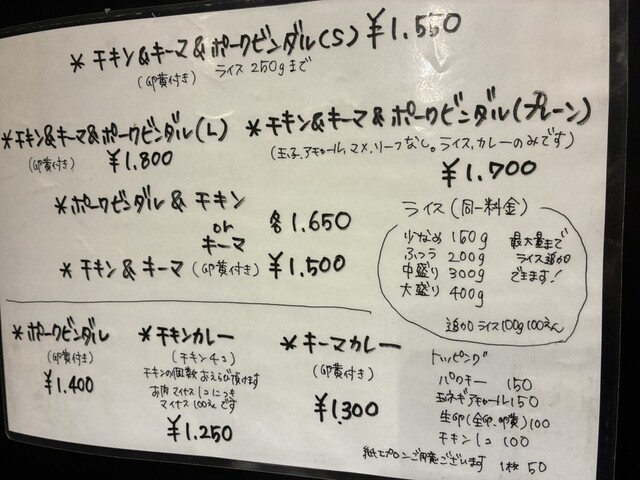 * チキン&キーマ&ポークビンダル(S) ¥1.550
(卵黄付き) ライス250gまで
* チキン&キーマ&ポークビンダル(L)
(卵黄付き) ¥1.800
* チキン&キーマ&ポークビンダル(プレーン)
(玉子、アチャール、マメ、リーフなし。ライス、カレーのみです)
¥1.700
* ポークビンダル & チキン
or
キーマ
各 1.650
* チキン & キーマ (卵黄付き) ¥1.500
ライス (同一料金)
少なめ 150g
ふつう 200g
中盛り 300g
大盛り 400g
最大量まで
ライス追加
できます!
追加ライス100g100えん
* ポークビンダル
(卵黄付き)
¥1.400
* チキンカレー
(チキン4コ)
チキンの個数おえらび頂けます
お肉マイナス1コにつき
マイナス100えんです
¥1.250
* キーマカレー
(卵黄付き)
¥1.300
トッピング
パクチー 150
玉ネギアチャール 150
生卵(全卵・卵黄)100
チキン1コ 100
紙エプロンご用意ございます 1枚 50